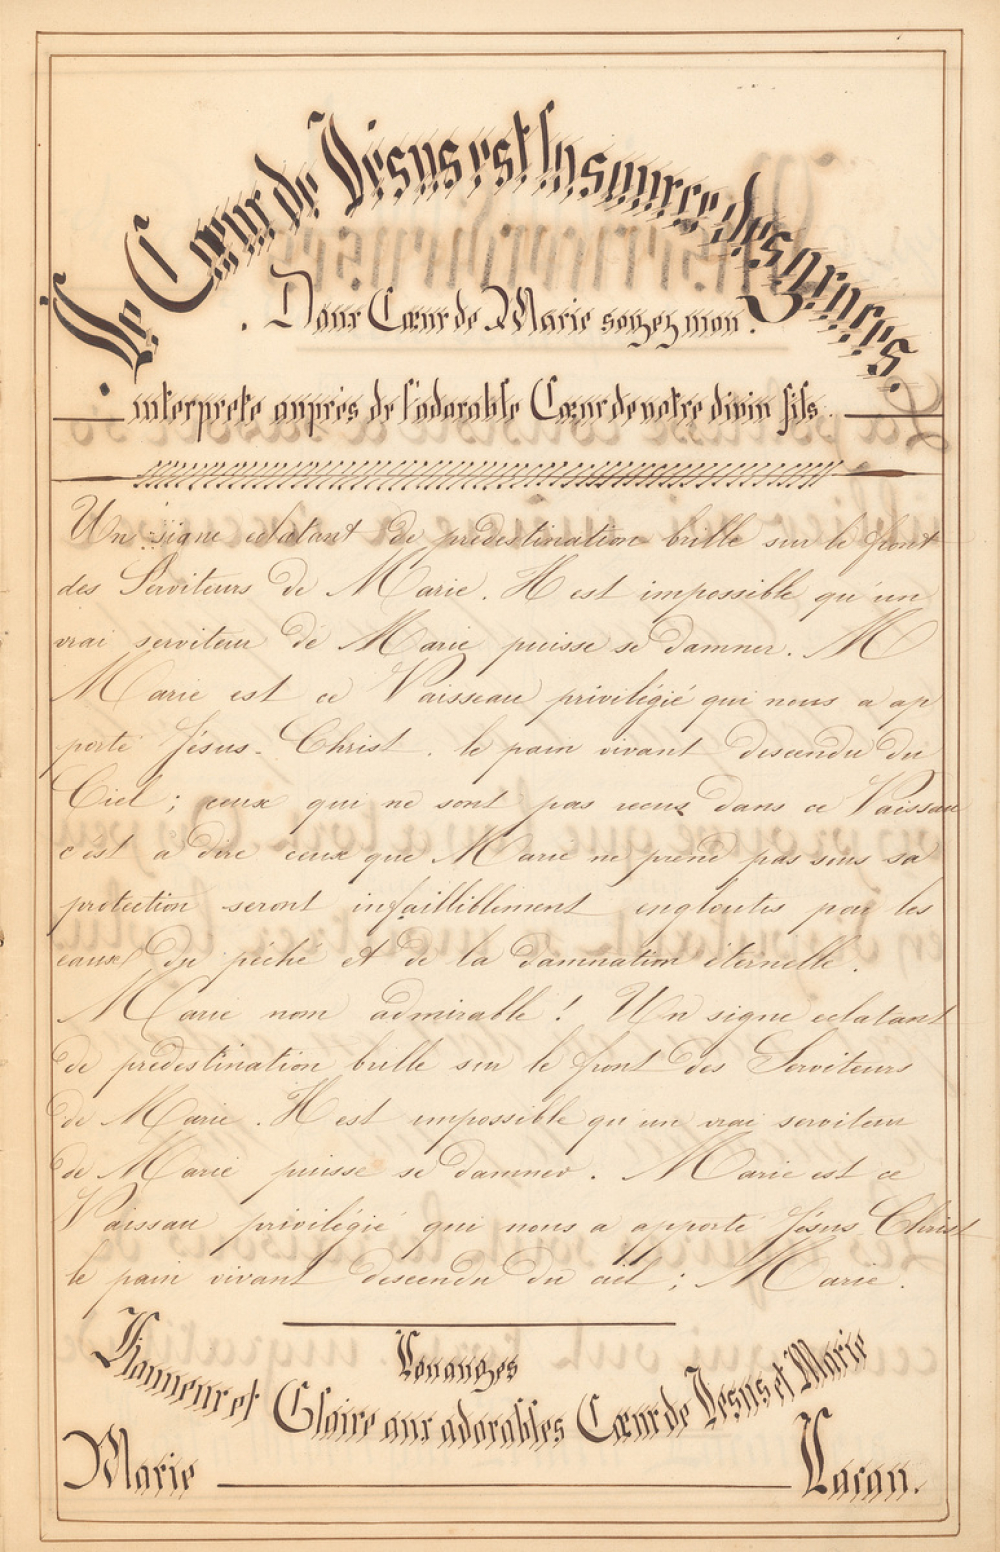 Le Cœur de Jésus est la source des Grâces.
. Doux Cœur de Marie soyez mon .
interprete auprès de l'adorable Cœur de votre divin fils.
Un signe eclatant de predestination brille sur le front
des Serviteurs de Marie. Il est impossible qu'un
vrai serviteur de Marie puisse se damner. M
Marie est ce Vaisseau privilégié qui nous a ap
porté Jésus-Christ. le pain vivant descendu du
Ciel ; ceux qui ne sont pas recus dans ce Vaisseau
c'est a dire ceux que Marie ne prend pas sous sa
protection seront infailliblement engloutis par les
eaux du péché et de la damnation éternelle.
Marie nom admirable ! Un signe eclatant
de predestination brille sur le front des Serviteurs
de Marie. Il est impossible qu'un vrai serviteur
de Marie puisse se damner. Marie est ce
Vaisseau privilégié qui nous a apporté Jésus Christ
le pain vivant descendu du ciel ; Marie.
Louanges
Honneur et Gloire aux adorables Cœur de Jesus et Marie
Marie Lacan.